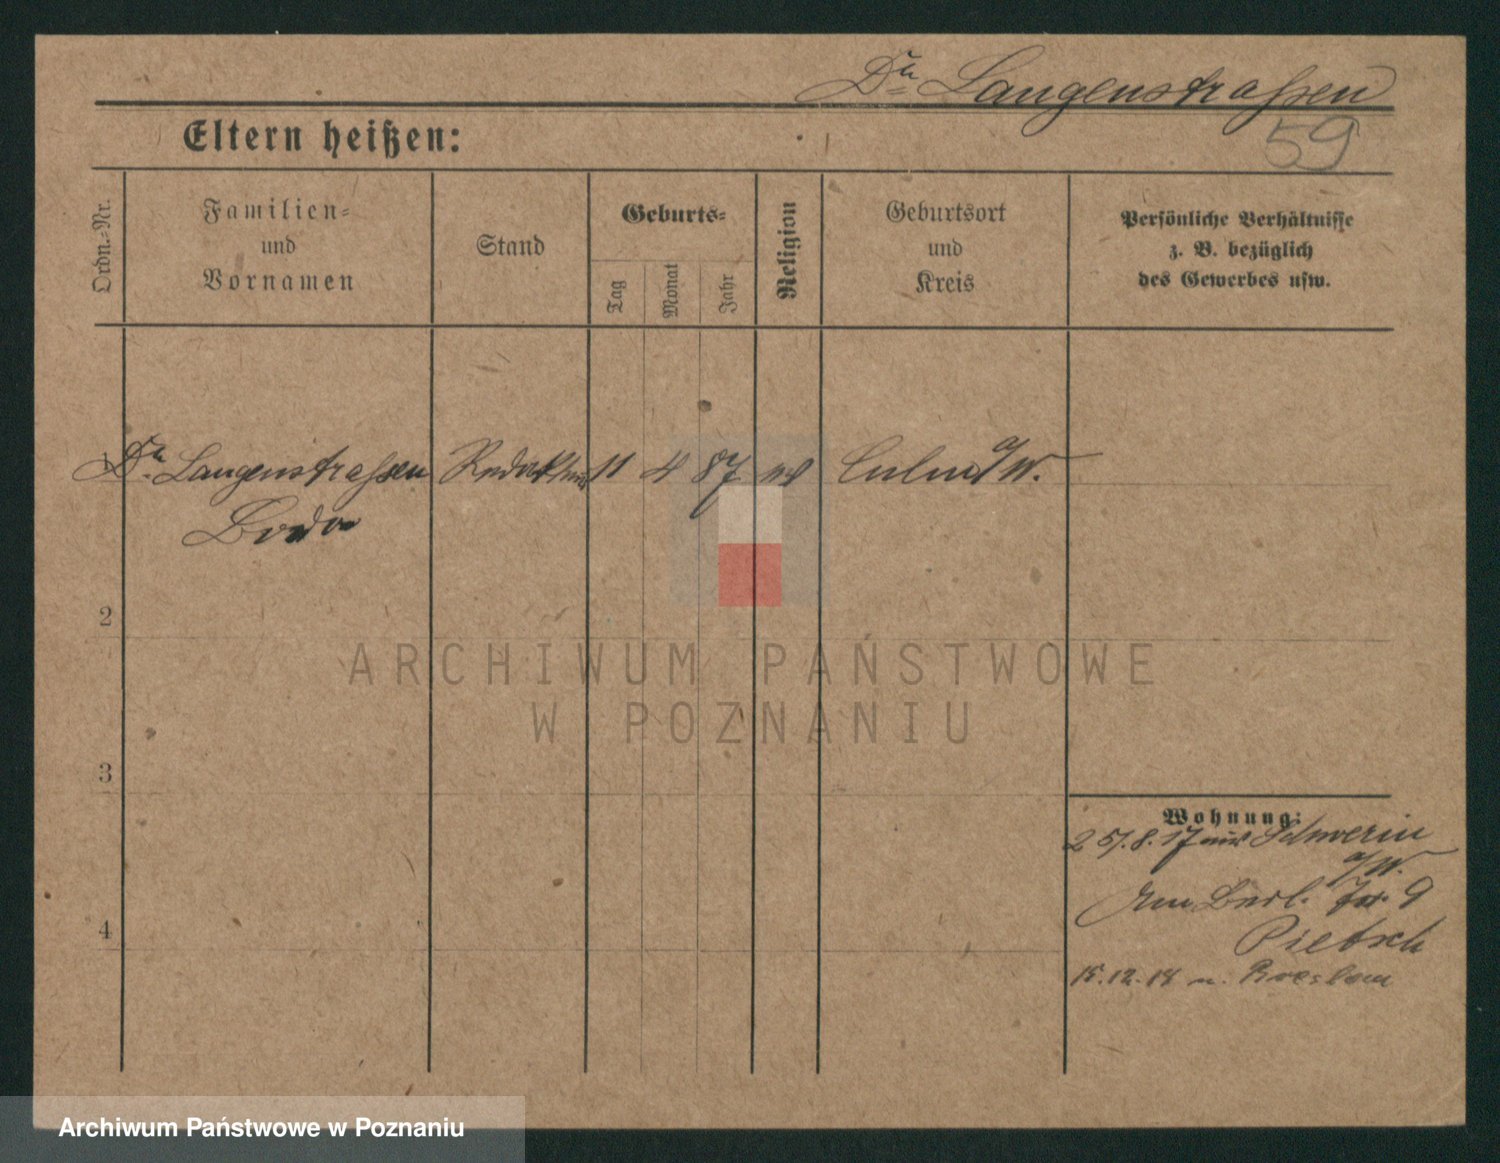 Dr. Langenstrassen
59
Eltern heißen:
Ordn.-Nr.
Familien-
und
Vornamen
Stand
Geburts-
Tag
Monat
Jahr
Religion
Geburtsort
und
Kreis
Persönliche Verhältnisse
z. B. bezüglich
des Gewerbes usw.
Dr. Langenstrassen Redakteur 11 4 87 Culm a/W.
Bodo
2
3
4
Wohnung:
25/.8.17 aus Schwerin
a/W.
Am Berl. Tor. 9
Pietsch
15.12.18 n. Breslau
ARCHIWUM PAŃSTWOWE
W POZNANIU
Archiwum Państwowe w Poznaniu